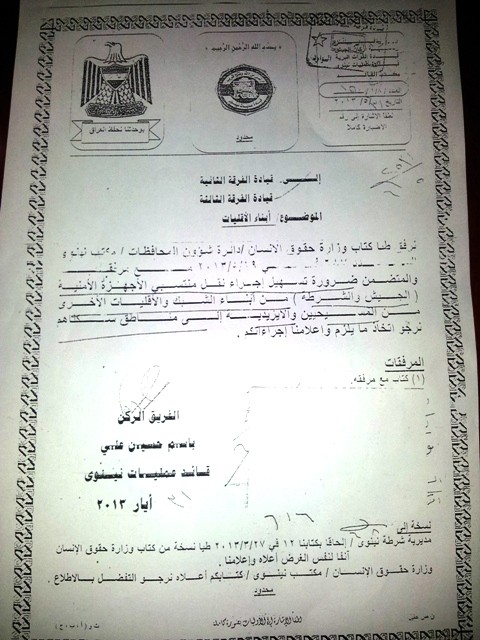 بسم الله الرحمن الرحيم
بوحدتنا نحفظ العراق
محدود
العدد
التاريخ ٢٠١٣/٥/٣١
إلى. قيادة الفرقة الثانية
قيادة الفرقة الثالثة
الموضوع/ أبناء الأقليات
نرفق طيا كتاب وزارة حقوق الإنسان/دائرة شؤون المحافظات/ مكتب نينوى
٢٠١٣/٥/٩ مع مرفقه
والمتضمن ضرورة تسهيل إجراء نقل منتسبي الأجهزة الأمنية
( الجيش والشرطة ) من أبناء الشبك والأقليات الأخرى
من المسيحيين والايزيدية إلى مناطق سكناهم
نرجو اتخاذ ما يلزم واعلامنا إجراءاتكم .
المرفقات
(١) كتاب مع مرفقه.
الفريق الركن
باسم حسين علي
قائد عمليات نينوى
٣١ أيار ٢٠١٣
٦١٦
نسخة إلى
مديرية شرطة نينوى / إلحاقا بكتابنا ١٢ في ٢٠١٣/٣/٢٧ طيا نسخة من كتاب وزارة حقوق الإنسان
آنفا لنفس الغرض أعلاه وإعلامنا .
وزارة حقوق الإنسان / مكتب نينوى / كتابكم أعلاه نرجو التفضل بالاطلاع .
محدود